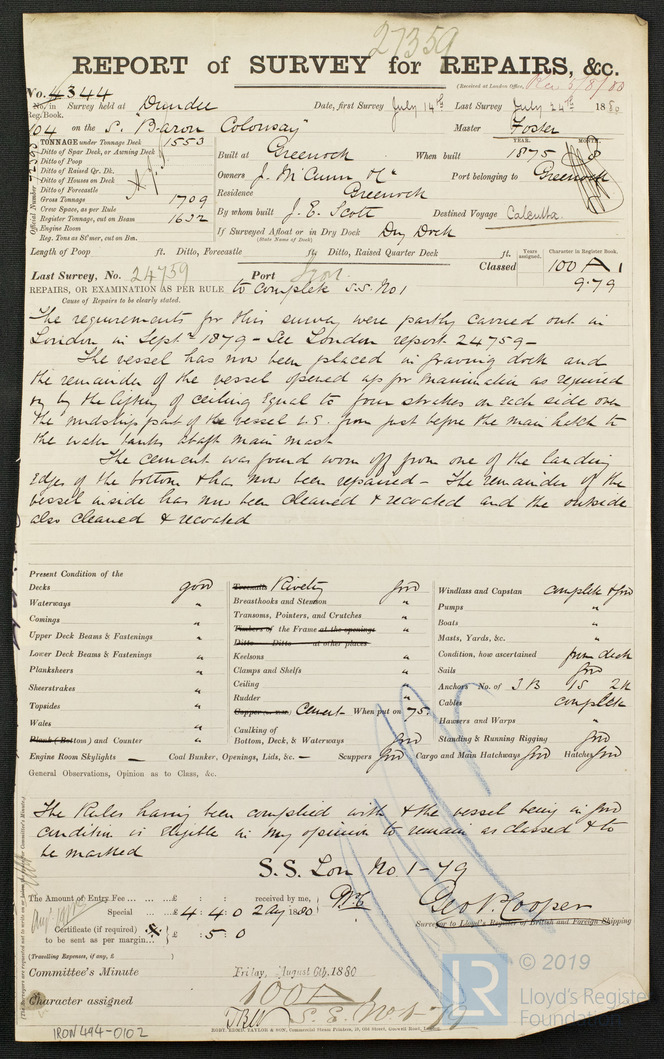 27359
REPORT of SURVEY for REPAIRS, &c.
(Received at London Office, Rec 5/8/80
No. 4344
No. in Survey held at Dundee Date, first Survey July 14th Last Survey July 24th 1880
Reg. Book.
104 on the S. "Baron Colonsay" Master Foster
TONNAGE under Tonnage Deck 1553
Ditto of Spar Deck, or Awning Deck
Ditto of Poop
Ditto of Raised Qr. Dk.
Ditto of Houses on Deck
Ditto of Forecastle
Gross Tonnage 1709
Crew Space, as per Rule
Register Tonnage, cut on Beam 1632
Engine Room
Reg. Tons as St'mer, cut on Bm.
Official Number
YEAR. MONTH.
Built at Greenock When built 1875 8
Owners J. McCunn & Co Port belonging to Greenock
Residence Greenock
By whom built J. E. Scott Destined Voyage Calcutta.
If Surveyed Afloat or in Dry Dock Dry Dock
(State Name of Dock)
Length of Poop ft. Ditto, Forecastle ft. Ditto, Raised Quarter Deck ft.
Years assigned. Character in Register Book.
Classed 100 A 1
9.79
Last Survey, No. 24759 Port Lon.
REPAIRS, OR EXAMINATION AS PER RULE to complete S.S. No 1
Cause of Repairs to be clearly stated.
The requirements for this survey were partly carried out in
London in Septr 1879 - See London report 24759 -
The vessel has now been placed in graving dock and
the remainder of the vessel opened up for examination as required
by the lifting of ceiling equal to four strakes on each side over
the midship part of the vessel i.e. from just before the main hatch to
the water tanks abaft main mast
The cement was found worn off from one of the landing
edges of the bottom & has now been repaired - The remainder of the
vessel inside has now been cleaned & recoated and the outside
also cleaned & recoated
Present Condition of the
Decks good
Waterways "
Comings "
Upper Deck Beams & Fastenings "
Lower Deck Beams & Fastenings "
Planksheers "
Sheerstrakes "
Topsides "
Wales "
Plank (Bottom) and Counter "
Engine Room Skylights — Coal Bunker, Openings, Lids, &c. — Scuppers good Cargo and Main Hatchways good Hatches good
Treenails Riveting good
Breasthooks and Stemson "
Transoms, Pointers, and Crutches "
Timbers of the Frame at the openings "
Ditto Ditto at other places
Keelsons "
Clamps and Shelfs "
Ceiling "
Rudder "
Copper Cement When put on 75.
Caulking of
Bottom, Deck, & Waterways good
Windlass and Capstan complete & good
Pumps "
Boats "
Masts, Yards, &c. "
Condition, how ascertained from deck
Sails good
Anchors No. of 3 B 1S 2K
Cables complete
Hawsers and Warps "
Standing & Running Rigging good
General Observations, Opinion as to Class, &c.
The Rules having been complied with & the vessel being in good
condition is eligible in my opinion to remain as classed & to
be marked
S.S. Lon No 1-79
The Amount of Entry Fee ... ... £ : : received by me,
Special ... ... £ 4 : 4 : 0 2 Aug 1880
Certificate (if required) £ : 5 : 0
to be sent as per margin...
(Travelling Expenses, if any, £ )
Geo R Cooper
Surveyor to Lloyd's Register of British and Foreign Shipping
Committee's Minute Friday, August 6th, 1880
Character assigned 100 A 1
S.S. No 1-79
IRON 494-0102
© 2019
LR
Lloyd's Register
Foundation